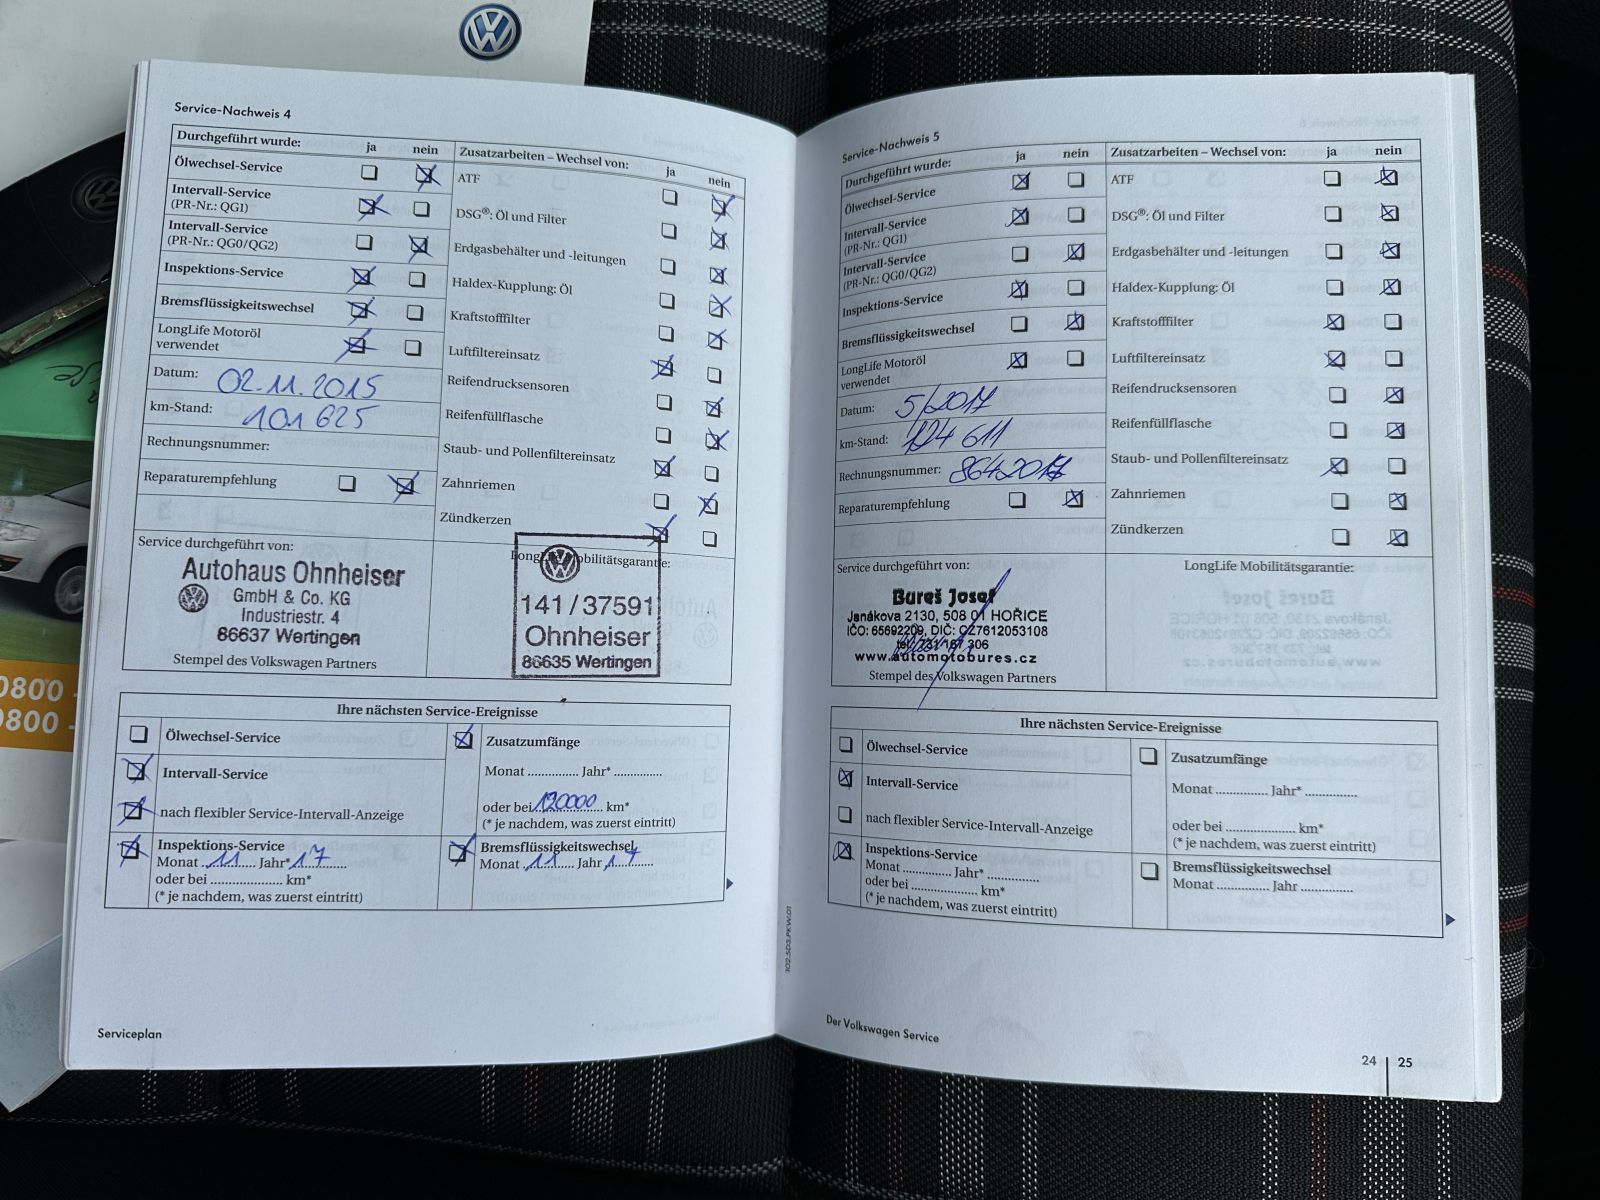 Service-Nachweis 4
Durchgeführt wurde: ja nein
Ölwechsel-Service
Intervall-Service
(PR-Nr.: QG1)
Intervall-Service
(PR-Nr.: QG0/QG2)
Inspektions-Service
Bremsflüssigkeitswechsel
LongLife Motoröl
verwendet
Datum: 02.11.2015
km-Stand: 101 625
Rechnungsnummer:
Reparaturempfehlung
Zusatzarbeiten – Wechsel von: ja nein
ATF
DSG®: Öl und Filter
Erdgasbehälter und -leitungen
Haldex-Kupplung: Öl
Kraftstofffilter
Luftfiltereinsatz
Reifendrucksensoren
Reifenfüllflasche
Staub- und Pollenfiltereinsatz
Zahnriemen
Zündkerzen
Service durchgeführt von:
Autohaus Ohnheiser
GmbH & Co. KG
Industriestr. 4
86637 Wertingen
Stempel des Volkswagen Partners
LongLife Mobilitätsgarantie:
141/37591
Ohnheiser
86635 Wertingen
Ihre nächsten Service-Ereignisse
Ölwechsel-Service
Intervall-Service
nach flexibler Service-Intervall-Anzeige
Inspektions-Service
Monat 11 Jahr* 17
oder bei ........ km*
(* je nachdem, was zuerst eintritt)
Zusatzumfänge
Monat ........ Jahr* ........
oder bei 120000 km*
(* je nachdem, was zuerst eintritt)
Bremsflüssigkeitswechsel
Monat 11 Jahr 17
Serviceplan
Service-Nachweis 5
Durchgeführt wurde: ja nein
Ölwechsel-Service
Intervall-Service
(PR-Nr.: QG1)
Intervall-Service
(PR-Nr.: QG0/QG2)
Inspektions-Service
Bremsflüssigkeitswechsel
LongLife Motoröl
verwendet
Datum: 5/2017
km-Stand: 124 611
Rechnungsnummer: 8642017
Reparaturempfehlung
Zusatzarbeiten – Wechsel von: ja nein
ATF
DSG®: Öl und Filter
Erdgasbehälter und -leitungen
Haldex-Kupplung: Öl
Kraftstofffilter
Luftfiltereinsatz
Reifendrucksensoren
Reifenfüllflasche
Staub- und Pollenfiltereinsatz
Zahnriemen
Zündkerzen
Service durchgeführt von:
Bureš Josef
Janákova 2130, 508 01 HOŘICE
IČO: 65692209, DIČ: CZ7612053108
tel: 731 167 306
www.automotobures.cz
Stempel des Volkswagen Partners
LongLife Mobilitätsgarantie:
Ihre nächsten Service-Ereignisse
Ölwechsel-Service
Intervall-Service
nach flexibler Service-Intervall-Anzeige
Inspektions-Service
Monat ........ Jahr* ........
oder bei ........ km*
(* je nachdem, was zuerst eintritt)
Zusatzumfänge
Monat ........ Jahr* ........
oder bei ........ km*
(* je nachdem, was zuerst eintritt)
Bremsflüssigkeitswechsel
Monat ........ Jahr ........
102.5D3.PKW.01
Der Volkswagen Service
24 25
0800
0800